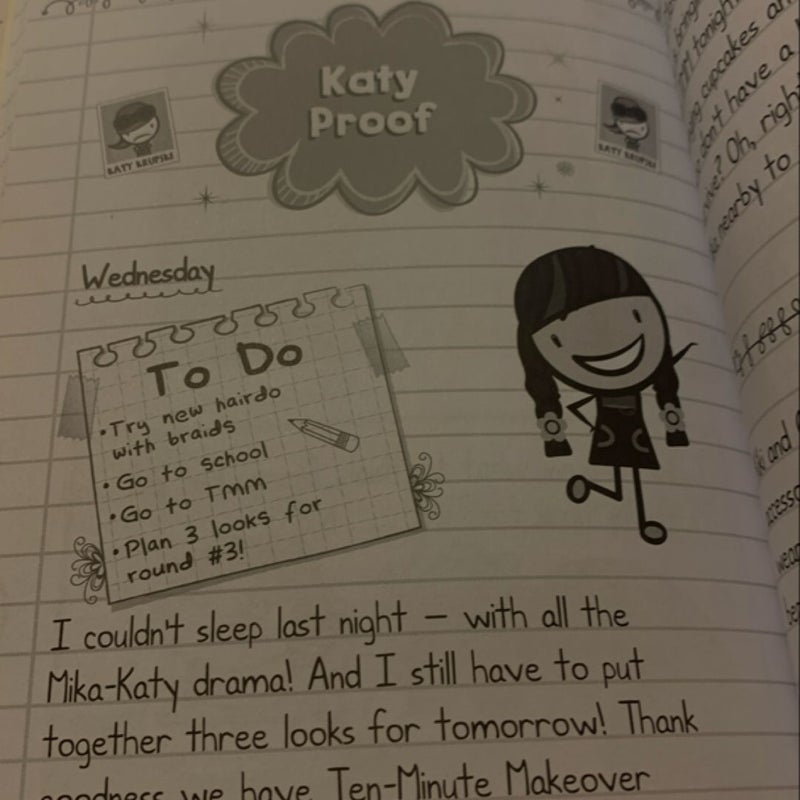 Katy
Proof
KATY KRUPSKI
KATY KRUPSKI
Wednesday
To Do
•Try new hairdo
with braids
•Go to school
•Go to TMM
•Plan 3 looks for
round #3!
I couldn't sleep last night – with all the
Mika-Katy drama! And I still have to put
together three looks for tomorrow! Thank
goodness we have Ten-Minute Makeover
tonight
cupcakes an
don't have a
? Oh, right
nearby to
and